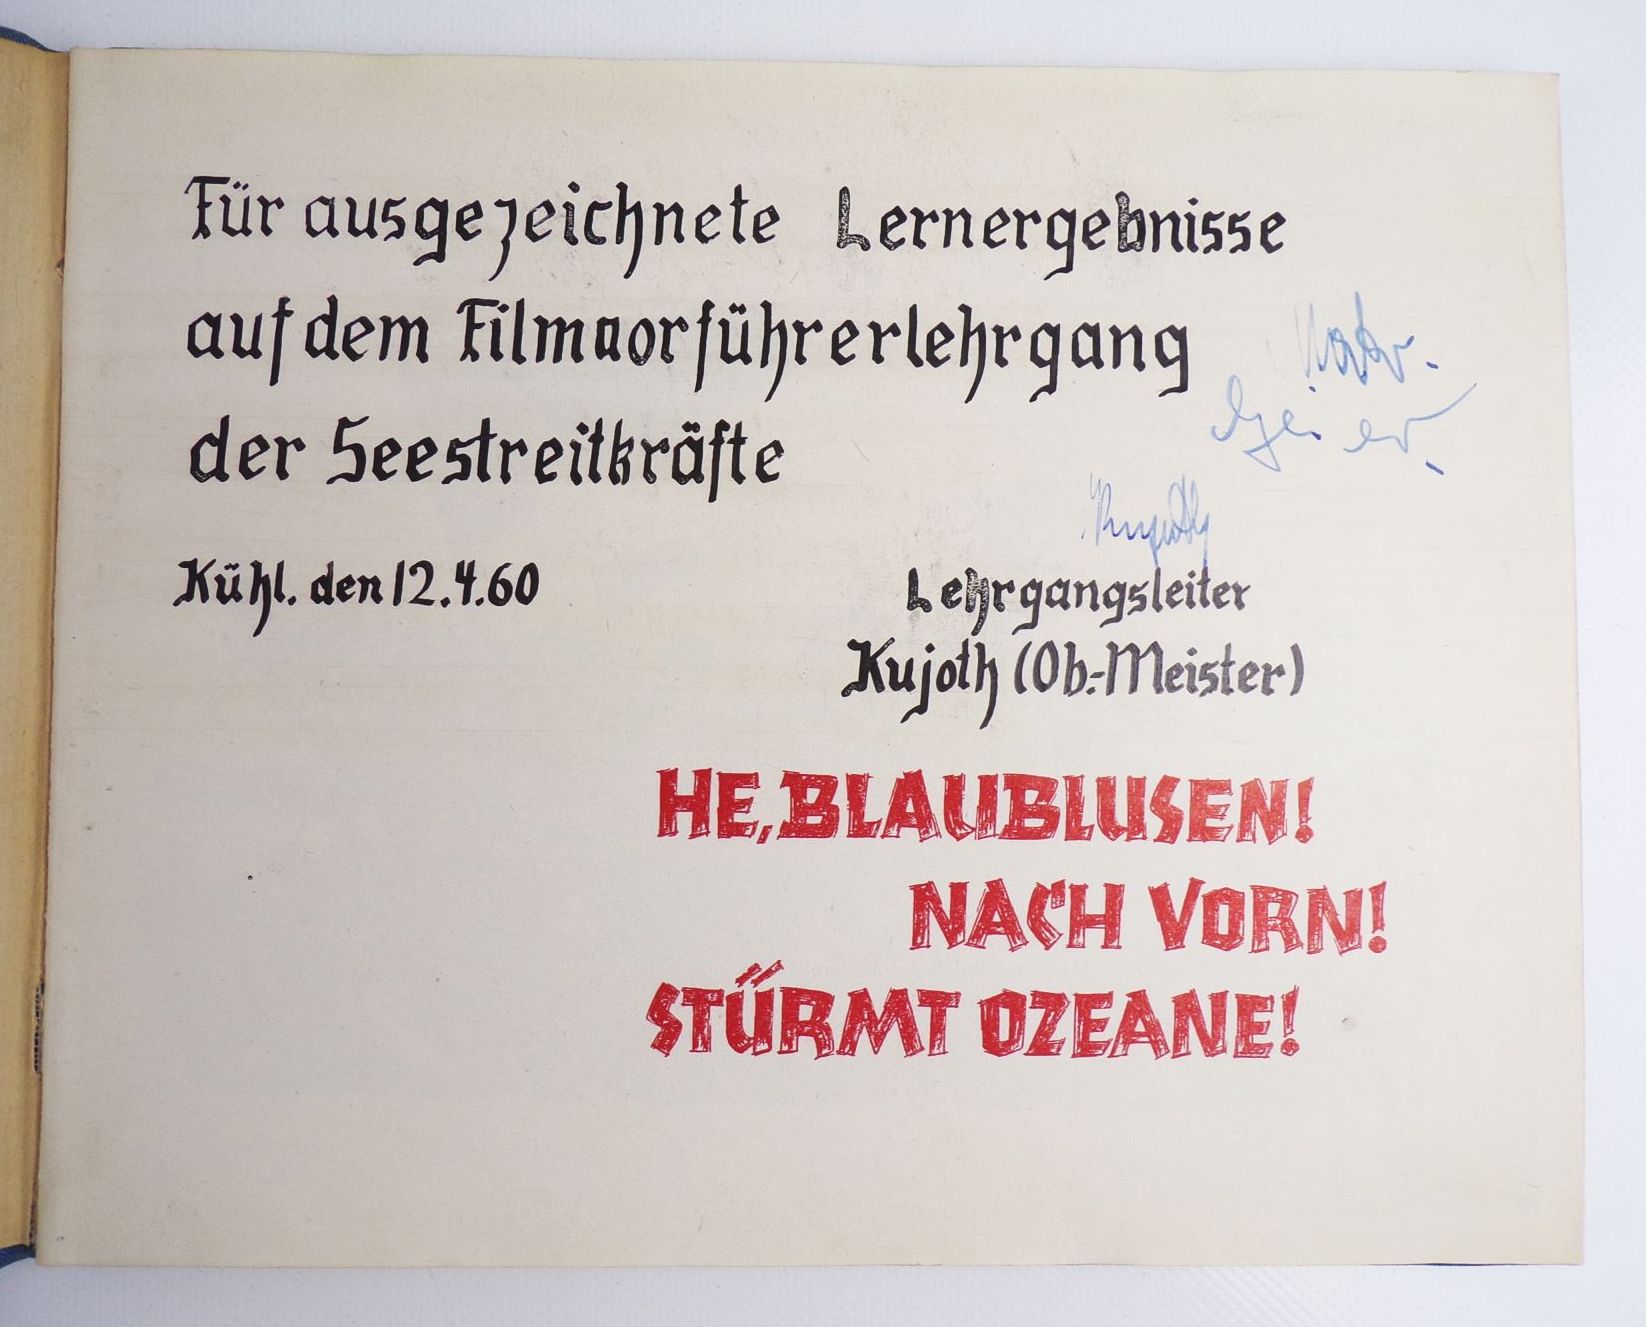 Für ausgezeichnete Lernergebnisse
auf dem Filmvorführerlehrgang
der Seestreitkräfte
Kühl. den 12.4.60
Lehrgangsleiter
Kujoth (Ob.-Meister)
HE, BLAUBLUSEN!
NACH VORN!
STÜRMT OZEANE!